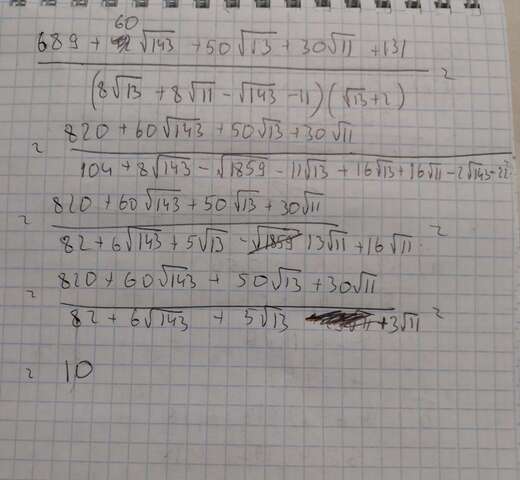 60
689 + √143 + 50√13 + 30√11 + 131
(8√13 + 8√11 - √143 - 11)(√13 + 2)
=
820 + 60√143 + 50√13 + 30√11
=
104 + 8√143 - √1859 - 11√13 + 16√13 + 16√11 - 2√143 - 22
820 + 60√143 + 50√13 + 30√11
=
82 + 6√143 + 5√13 - 13√11 + 16√11
=
820 + 60√143 + 50√13 + 30√11
=
82 + 6√143 + 5√13 + 3√11
=
= 10